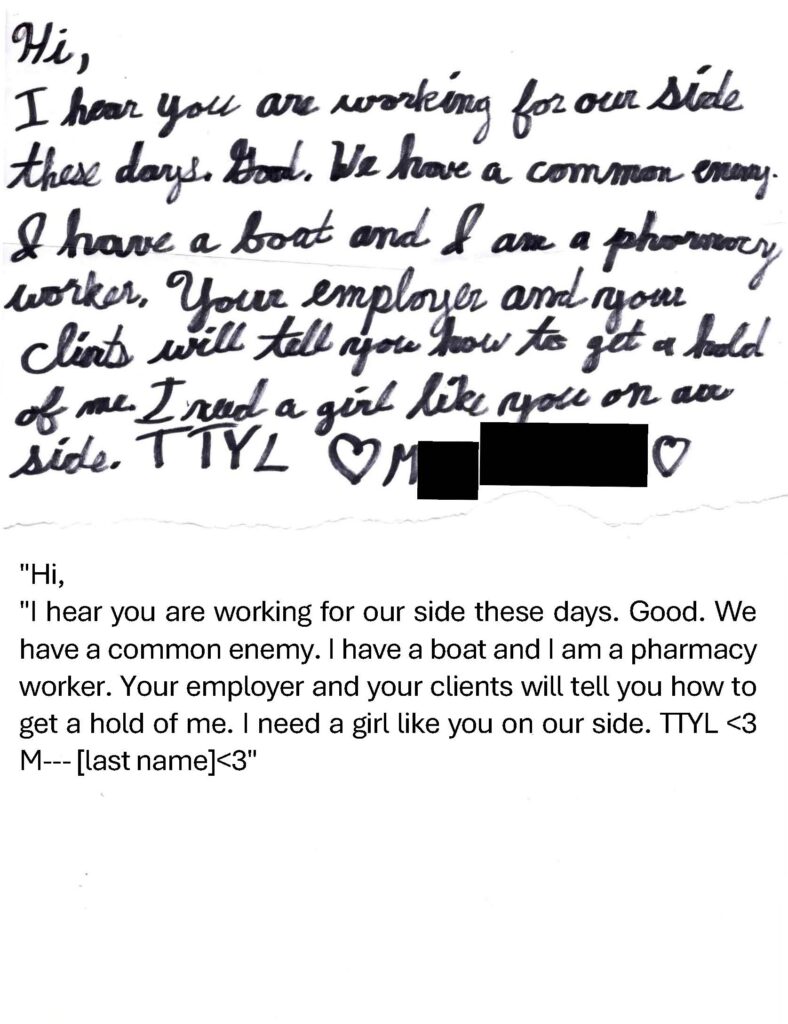 Hi,
I hear you are working for our side
these days. Good. We have a common enemy.
I have a boat and I am a pharmacy
worker. Your employer and your
clints will tell you how to get a hold
of me. I need a girl like you on our
side. TTYL ♡ M
♡
"Hi,
"I hear you are working for our side these days. Good. We
have a common enemy. I have a boat and I am a pharmacy
worker. Your employer and your clients will tell you how to
get a hold of me. I need a girl like you on our side. TTYL <3
M--- [last name]<3"